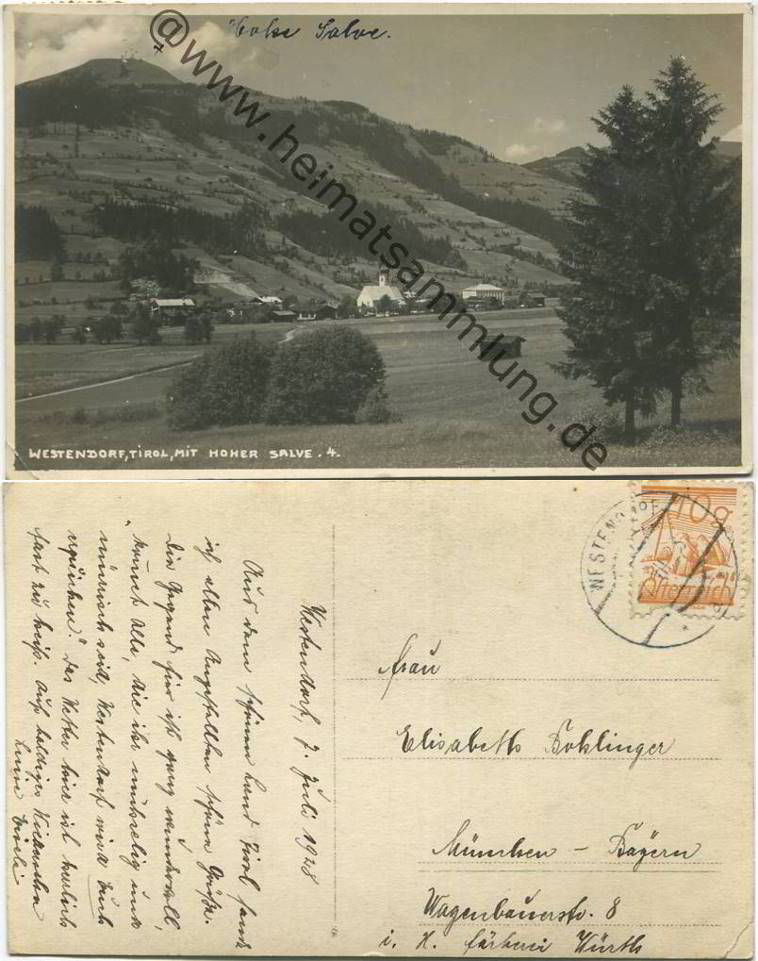 Hohe Salve.
@www.heimatsammlung.de
WESTENDORF, TIROL, MIT HOHER SALVE. 4.
Westendorf, 7. Juli 1928
Aus dem schönen Land Tirol sende
ich allen Angestellten schöne Grüße.
Die Gegend hier ist ganz wundervoll,
"kommt alle, die ihr mühselig und
mürrisch seid, Westendorf wird Euch
erquicken." Das Wetter hier ist herrlich
fast zu heiß. Auf baldiges Wiedersehn
WESTENDORF
10g
Österreich
Frau
Elisabeth Boklinger
München - Bayern
Wagenbauerstr. 8
i. H. Färberei Würth